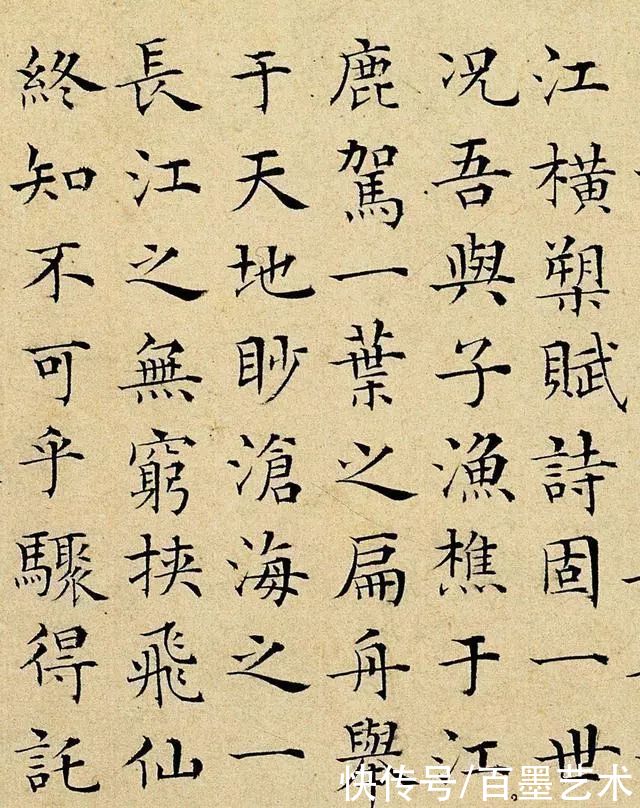 江橫槊賦詩固一世
况吾與子漁樵于江
鹿駕一葉之扁舟舉
于天地眇滄海之一
長江之無窮挾飛仙
終知不可乎驟得託
快传号/百墨艺术